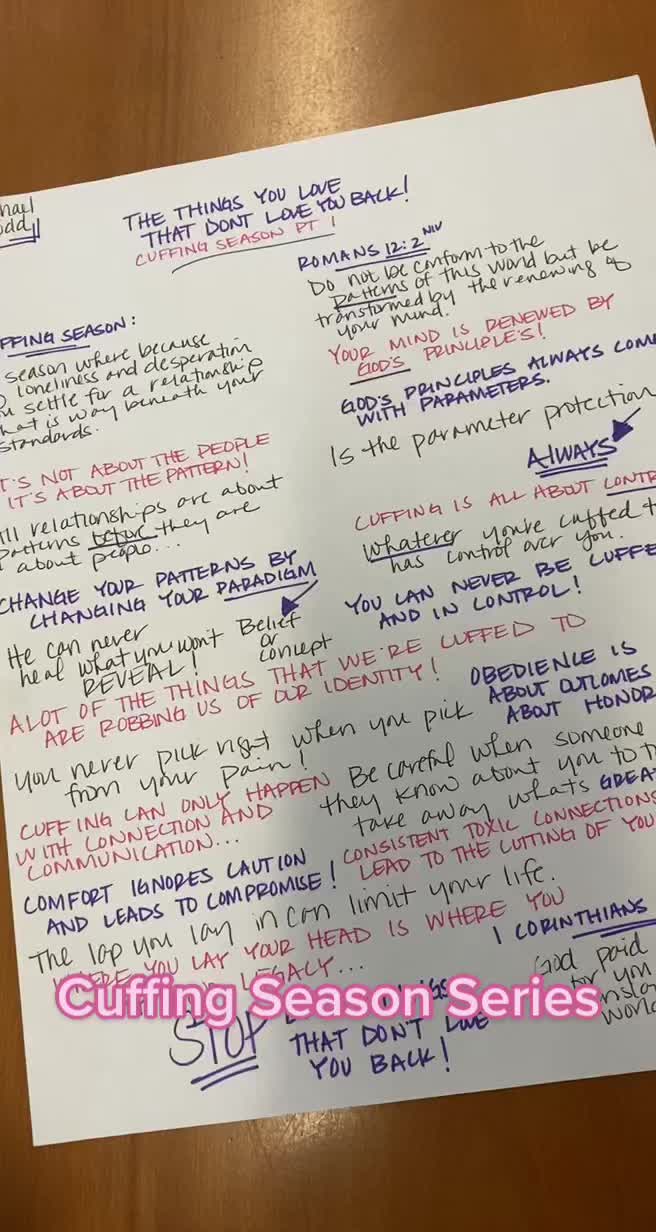 hael
odd
THE THINGS YOU LOVE
THAT DONT LOVE YOU BACK!
CUFFING SEASON PT 1
FFING SEASON:
season where because
loneliness and desperation
settle for a relationship
hat is way beneath your
standards.
T'S NOT ABOUT THE PEOPLE
IT'S ABOUT THE PATTERN!
ll relationships are about
patterns before they are
about people...
CHANGE YOUR PATTERNS BY
CHANGING YOUR PARADIGM
Belief
or
concept
He can never
heal what you won't
REVEAL!
ROMANS 12:2 NIV
Do not be conform to the
patterns of this world but be
transformed by the renewing of
your mind.
YOUR MIND IS RENEWED BY
GOD'S PRINCIPLE'S!
GOD'S PRINCIPLES ALWAYS COM
WITH PARAMETERS.
Is the parameter protection
ALWAYS
CUFFING IS ALL ABOUT CONTR
Whatever you're cuffed t
has control over you.
YOU CAN NEVER BE CUFFE
AND IN CONTROL!
ALOT OF THE THINGS THAT WE'RE CUFFED TO
ARE ROBBING US OF OUR IDENTITY!
You never pick right when you pick
from your pain!
OBEDIENCE IS
ABOUT OUTCOMES
ABOUT HONOR
CUFFING CAN ONLY HAPPEN
WITH CONNECTION AND
COMMUNICATION...
Be careful when someone
they know about you to t
take away whats GREA
COMFORT IGNORES CAUTION
AND LEADS TO COMPROMISE!
CONSISTENT TOXIC CONNECTIONS
LEAD TO THE CUTTING OF YOU
The lap you lay in can limit your life.
WHERE YOU LAY YOUR HEAD IS WHERE YOU
LEGACY...
1 CORINTHIANS
God paid
for you
world
STOP
THAT DON'T LOVE
YOU BACK!
Cuffing Season Series